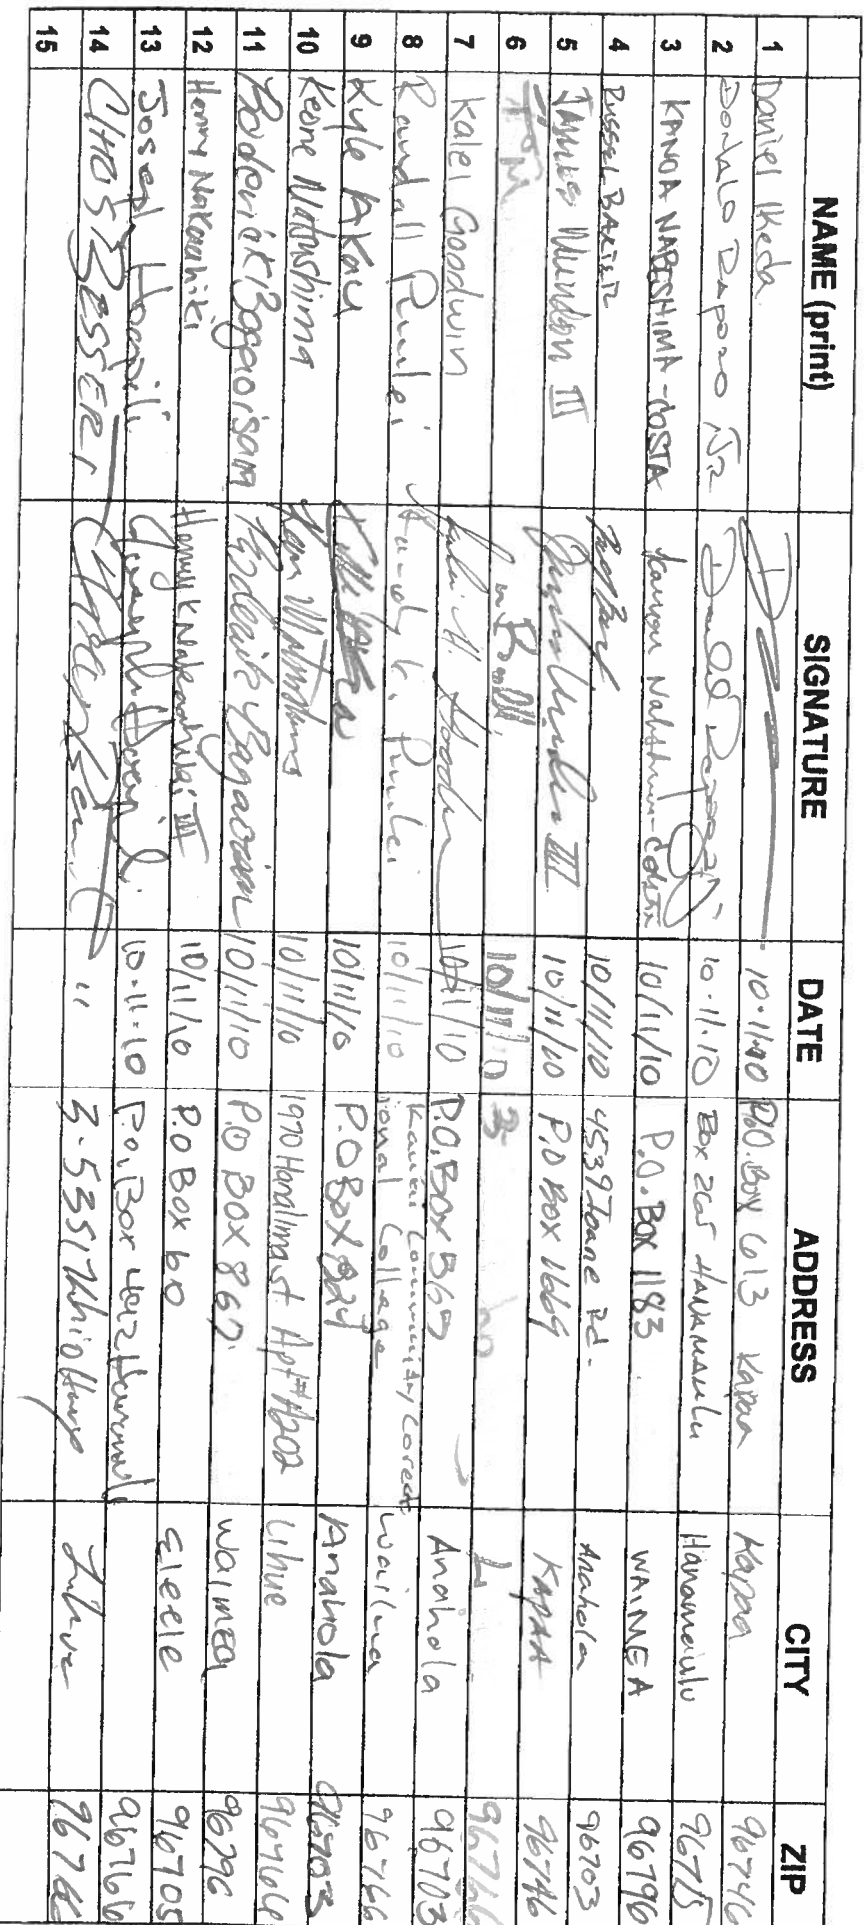 NAME (print) SIGNATURE DATE ADDRESS CITY ZIP
1 Daniel Ikeda 10·11·10 P.O. Box 613 Kapaa Kapaa 96746
2 Donald Raposo Jr Donald Raposo Jr 10·11·10 Box 265 HANAMAULU Hanamaulu 96715
3 KANOA NABESHIMA-COSTA Nabeshima-Costa 10/11/10 P.O. BOX 1183 WAIMEA 96796
4 Russel 10/11/10 4539 Ioane Rd. Anahola 96703
5 JAMES Mundon III III 10/11/10 P.O BOX 1669 KAPAA 96746
6 Tom 10/11/10 3- 96766
7 Kalei Goodwin Kalei H. 10/11/10 P.O. BOX 369 Anahola 96703
8 Randall Puulei Randy K. Puulei 10/11/10 Kauai Community Correct ional Collage Wailua 96766
9 Kyle AKau 10/11/10 P.O BOX 824 Anahola 96703
10 Keone Matsushima 10/11/10 1970 Hanalima st. Apt# A202 Lihue 96766
11 Roderick Bagaoisan Roderick Bagaoisan 10/11/10 P.O BOX 867. Waimea 96796
12 Henry Nakaahiki Henry K Nakaahiki III 10/11/10 P.O BOX 60 Eleele 96705
13 Joseph Joseph 10·11·10 P.O. Box 96766
14 " 3-5351 Kuhio Hwy Lihue 96766
15